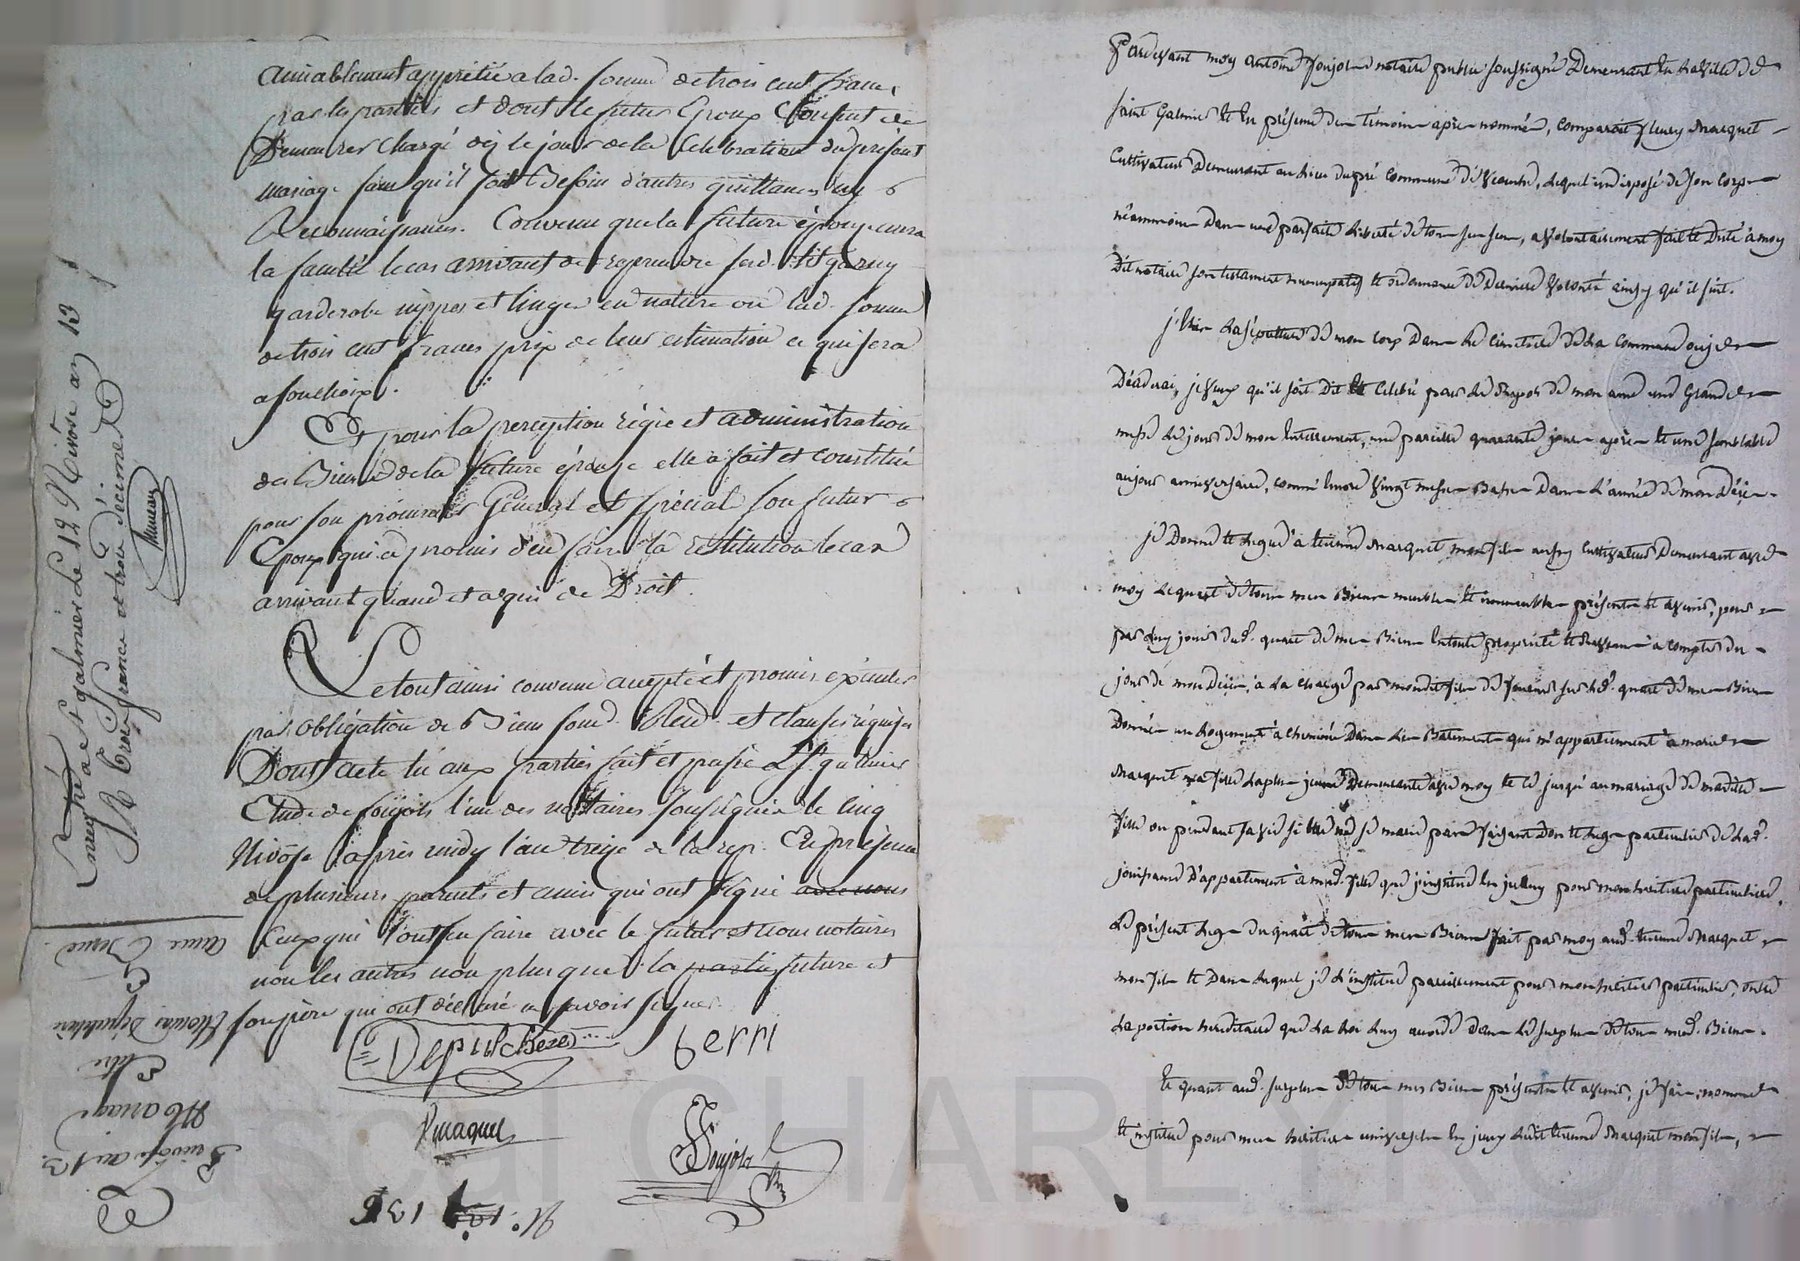 amiablement appretié a lad. somme de trois cent francs
par les parties et dont le futur Epoux Consent de
Demeurer chargé dès le jour de la Celebration du présent
mariage sans qu'il soit Besoin d'autres quittances ny
Reconnaissances. Convenu que la future épouse aura
la faculté le cas arrivant de reprendre sesd. lit garny
garderobe nippes et linges en nature ou lad. somme
de trois cent francs prix de leur estimation ce qui sera
a son choix.
Et pour la perception régie et administration
des Biens de la future épouse elle a fait et constitué
pour son procureur Général et spécial son futur
Epoux qui a promis d'en faire la restitution le cas
arrivant quand et a qui de Droit.
Le tout ainsi convenu accepté et promis exécuter
par obligation de Biens soum. Renon. et clauses requises
Dont acte lu aux parties fait et passé à St galmier
Etude de Soujols l'un des notaires soussignés le cinq
Nivôse après midy l'an treize de la rep. En présence
de plusieurs parents et amis qui ont signé avec nous
Ceux qui l'ont su faire avec le futur et nous notaires
non les autres non plus que la partie future et
son père qui ont déclaré ne savoir signer.
Depuichezes Berri
Maquel
Soujols
N°. 136
Enregistré a St galmier le 12 Nivose an 13
Reçu trois francs et trois décimes
5 nivôse an 13
Mariage
Entre
Depuichezes
Et
anne
Pardevant moy antoine Soujols notaire public soussigné Demeurant en la Ville de
saint Galmier et en présence des témoins après nommés, comparoit fleury Marquet
Cultivateur Demeurant au lieu du pré commune d'Aveizieu, lequel indisposé de son Corps
néammoins dans une parfaite liberté de tous ses sens, a volontairement fait et Dicté à moy
Dit notaire son testament nuncupatif et ordonnance de Derniere Volonté ainsy qu'il suit.
j'élis la sépulture de mon corps Dans le cimetière de la Commune où je
Décéderai, je veux qu'il soit Dit et Célébré pour le Repos de mon ame une Grande
messe le jour de mon enterrement, une pareille quarante jours après et une semblable
au jour anniversaire, comme encore Vingt messes Basses Dans l'année de mon Décès.
je Donne et Legue à etienne Marquet mon fils aussy Cultivateur Demeurant avec
moy le quart de tous mes Biens meubles et immeubles présents et avenir, pour
par luy jouir dud. quart de mes Biens en toute propriété et Revenus à compter du
jour de mon Décès, à la charge par mondit fils de fournir sur led. quart de mes Biens
Donnés un Logement à cheminée Dans les Batiments qui m'appartiennent à marie
Marquet ma fille la plus jeune Demeurante avec moy et ce jusqu'au mariage de madite
fille ou pendant sa vie si elle ne se marie pas faisant Don et Legs particulier de lad.
jouissance D'appartement à mad. fille que j'institue en iceluy pour mon héritiere particuliere,
le présent Legs du quart de tous mes Biens fait par moy aud. etienne Marquet
mon fils et Dans lequel je l'institue pareillement pour mon héritier particulier, outre
la portion héréditaire que la loi luy accorde dans le surplus de tous mesd. Biens.
et quant aud. surplus de tous mes Biens présents et avenir, je fais, nomme
et institue pour mes héritiers universels en iceux ledit etienne Marquet mon fils,